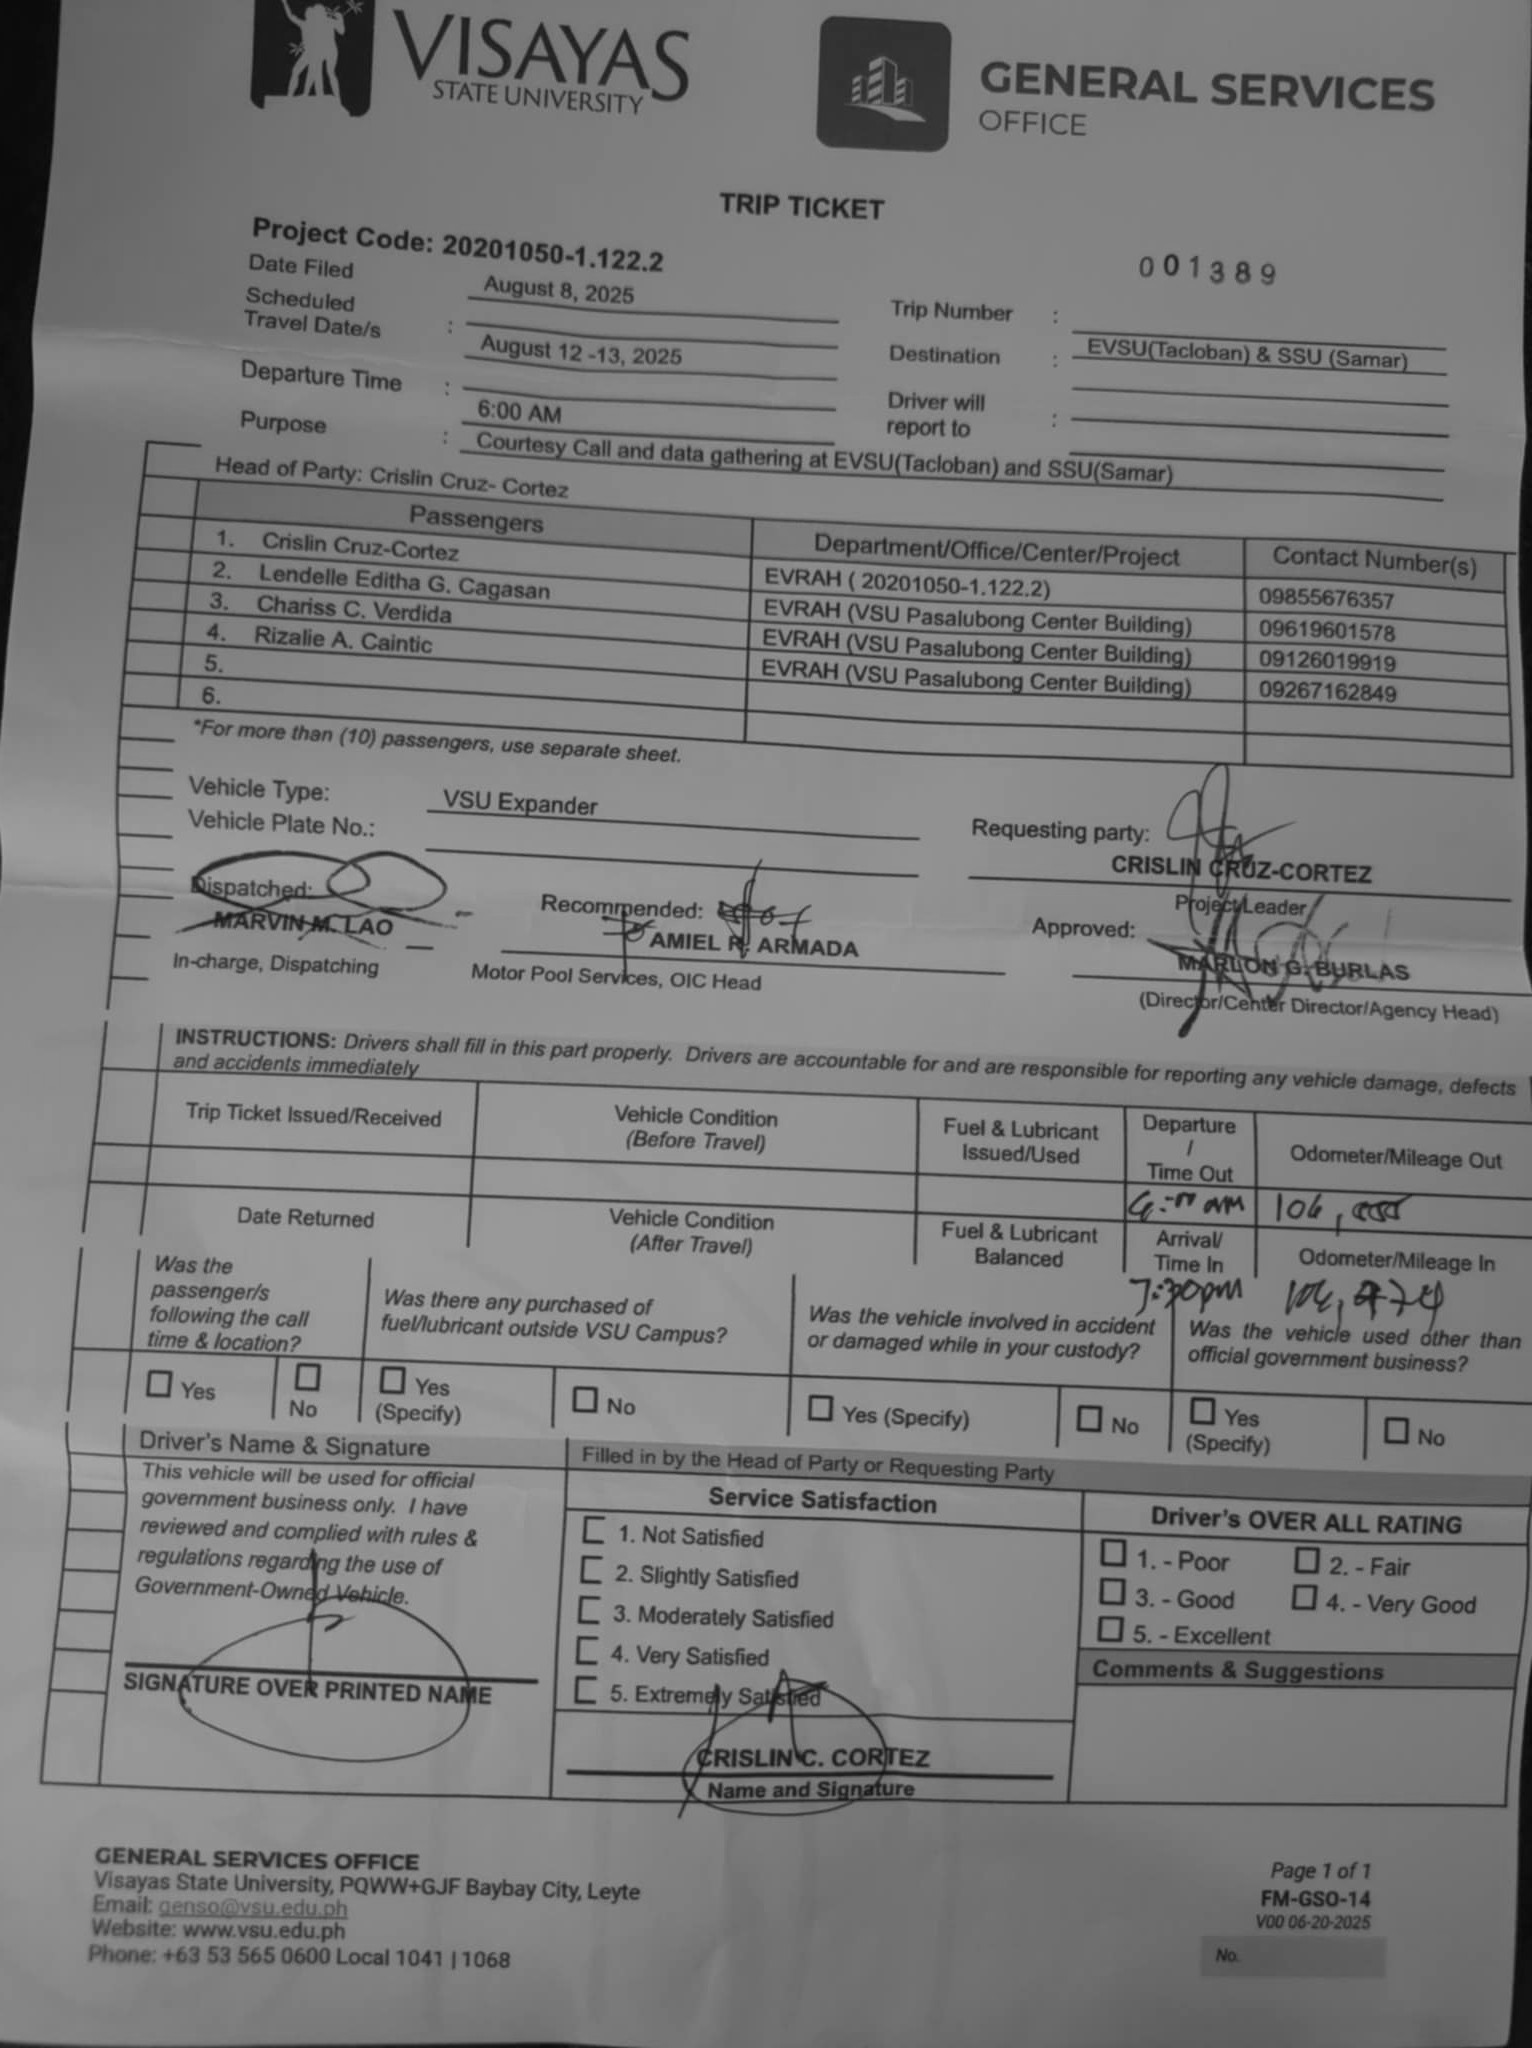 VISAYAS
STATE UNIVERSITY
GENERAL SERVICES
OFFICE
TRIP TICKET
Project Code: 20201050-1.122.2
001389
Date Filed August 8, 2025
Trip Number :
Scheduled
Travel Date/s : August 12 -13, 2025
Destination : EVSU(Tacloban) & SSU (Samar)
Departure Time : 6:00 AM
Driver will
report to :
Purpose : Courtesy Call and data gathering at EVSU(Tacloban) and SSU(Samar)
Head of Party: Crislin Cruz- Cortez
Passengers Department/Office/Center/Project Contact Number(s)
1. Crislin Cruz-Cortez EVRAH ( 20201050-1.122.2) 09855676357
2. Lendelle Editha G. Cagasan EVRAH (VSU Pasalubong Center Building) 09619601578
3. Chariss C. Verdida EVRAH (VSU Pasalubong Center Building) 09126019919
4. Rizalie A. Caintic EVRAH (VSU Pasalubong Center Building) 09267162849
5.
6.
*For more than (10) passengers, use separate sheet.
Vehicle Type: VSU Expander
Vehicle Plate No.:
Requesting party:
CRISLIN CRUZ-CORTEZ
Project Leader
Dispatched:
MARVIN M. LAO
In-charge, Dispatching
Recommended:
AMIEL R. ARMADA
Motor Pool Services, OIC Head
Approved:
MARLON G. BURLAS
(Director/Center Director/Agency Head)
INSTRUCTIONS: Drivers shall fill in this part properly. Drivers are accountable for and are responsible for reporting any vehicle damage, defects
and accidents immediately
Trip Ticket Issued/Received
Vehicle Condition
(Before Travel)
Fuel & Lubricant
Issued/Used
Departure
/
Time Out
Odometer/Mileage Out
Date Returned
Vehicle Condition
(After Travel)
Fuel & Lubricant
Balanced
Arrival/
Time In
Odometer/Mileage In
7:30pm
Was the
passenger/s
following the call
time & location?
Was there any purchased of
fuel/lubricant outside VSU Campus?
Was the vehicle involved in accident
or damaged while in your custody?
Was the vehicle used other than
official government business?
Yes
No
Yes
(Specify)
No
Yes (Specify)
No
Yes
(Specify)
No
Driver's Name & Signature
Filled in by the Head of Party or Requesting Party
This vehicle will be used for official
government business only. I have
reviewed and complied with rules &
regulations regarding the use of
Government-Owned Vehicle.
SIGNATURE OVER PRINTED NAME
Service Satisfaction
1. Not Satisfied
2. Slightly Satisfied
3. Moderately Satisfied
4. Very Satisfied
5. Extremely Satisfied
CRISLIN C. CORTEZ
Name and Signature
Driver's OVER ALL RATING
1. - Poor
2. - Fair
3. - Good
4. - Very Good
5. - Excellent
Comments & Suggestions
GENERAL SERVICES OFFICE
Visayas State University, PQWW+GJF Baybay City, Leyte
Email: genso@vsu.edu.ph
Website: www.vsu.edu.ph
Phone: +63 53 565 0600 Local 1041 | 1068
Page 1 of 1
FM-GSO-14
V00 06-20-2025
No.